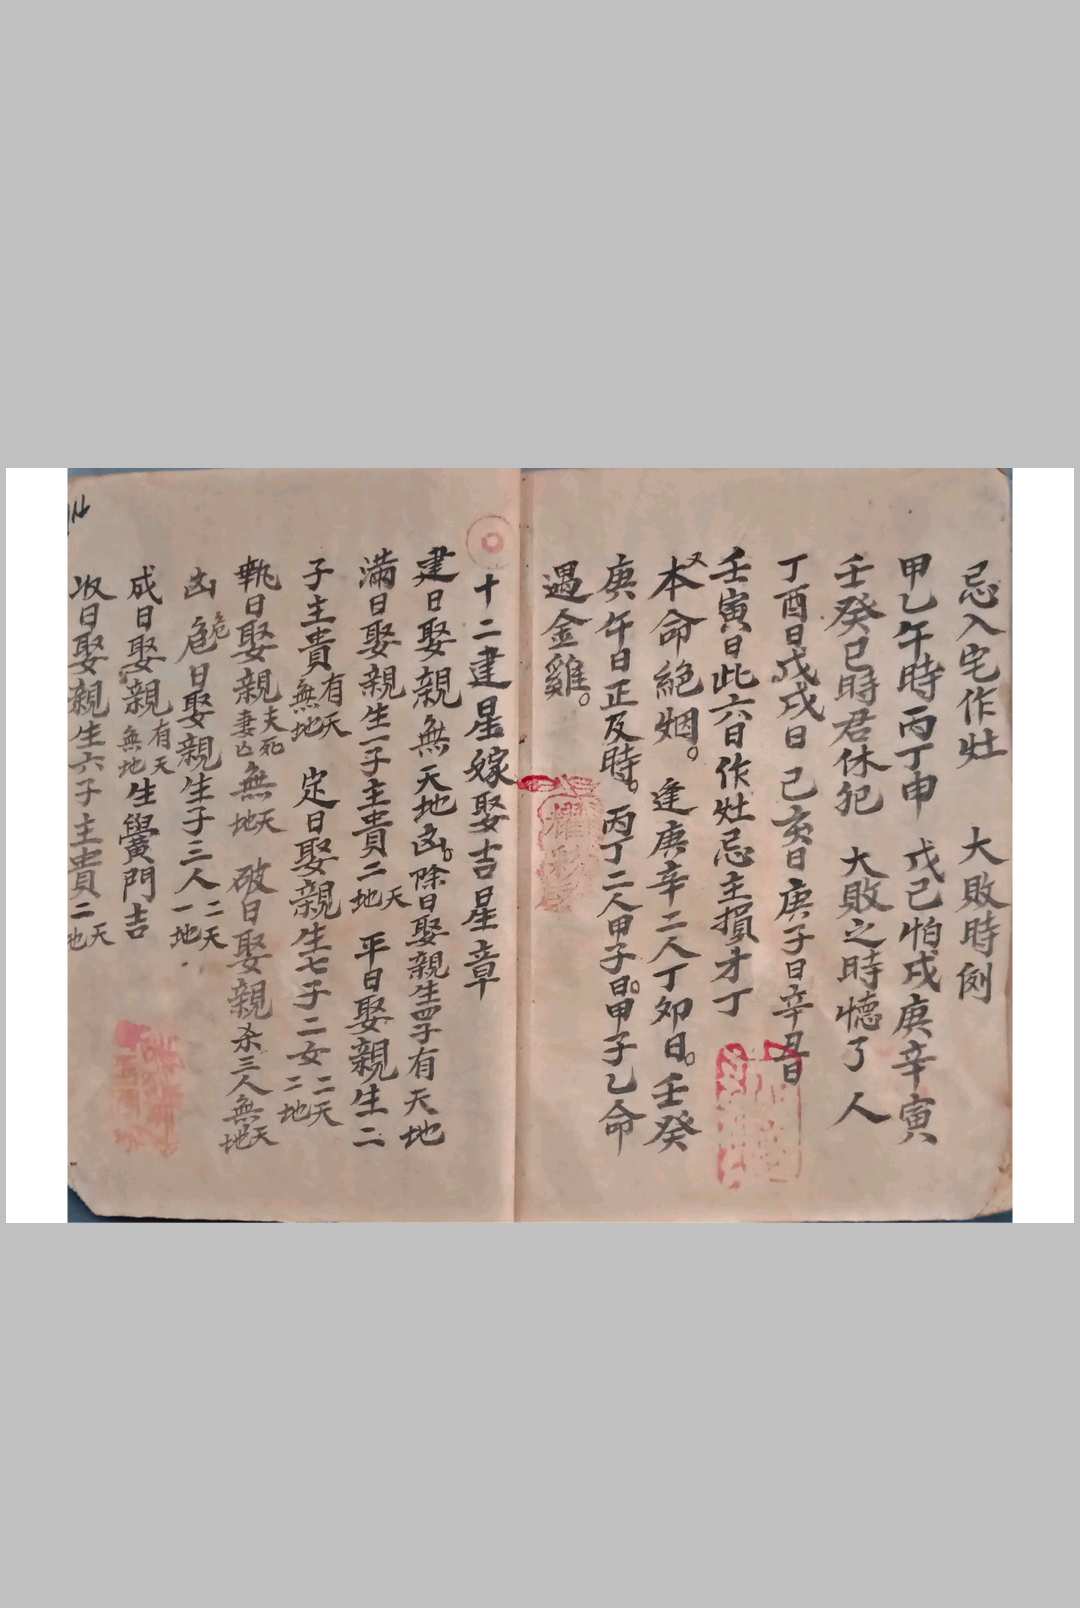 忌入宅作灶 大敗時例
甲乙午時丙丁申 戊己怕戌庚辛寅
壬癸巳時君休犯 大敗之時憶了人
丁酉日戊戌日己亥日庚子日辛丑日
壬寅日此六日作灶忌主損才丁
又本命絕烟。逢庚辛二人丁卯日。壬癸
庚午日正及時。丙丁二人甲子日。甲子乙命
遇金雞。
十二建星嫁娶吉星章
建日娶親無天地凶。除日娶親生四子有天地
滿日娶親生一子主貴二天地 平日娶親生二
子主貴有天無地 定日娶親生七子二女二天二地
執日娶親夫死妻亡無天地 破日娶親杀三人無天地
凶 危日娶親生子三人二天一地
成日娶親有天無地生黌門吉
收日娶親生六子主貴二天地